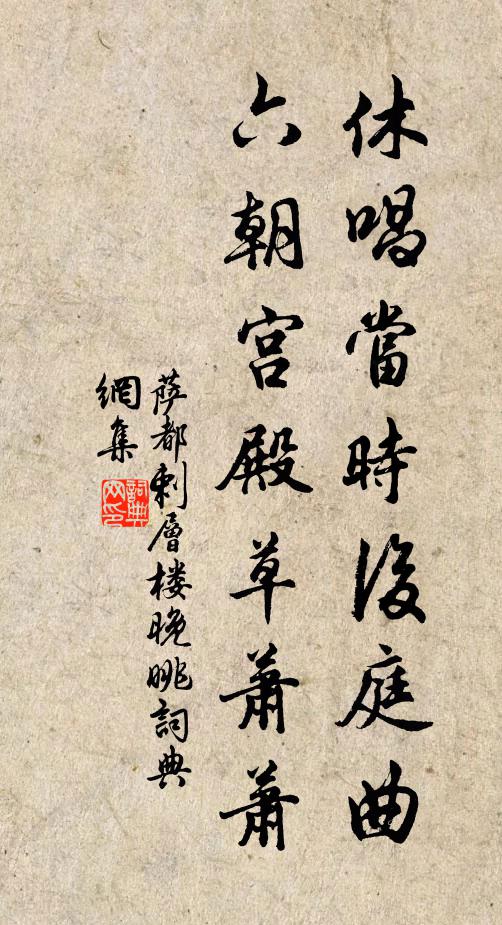 休唱當時後庭曲
六朝宮殿草蕭蕭
薩都剌層樓晚眺詞典
網集
詞典
网印